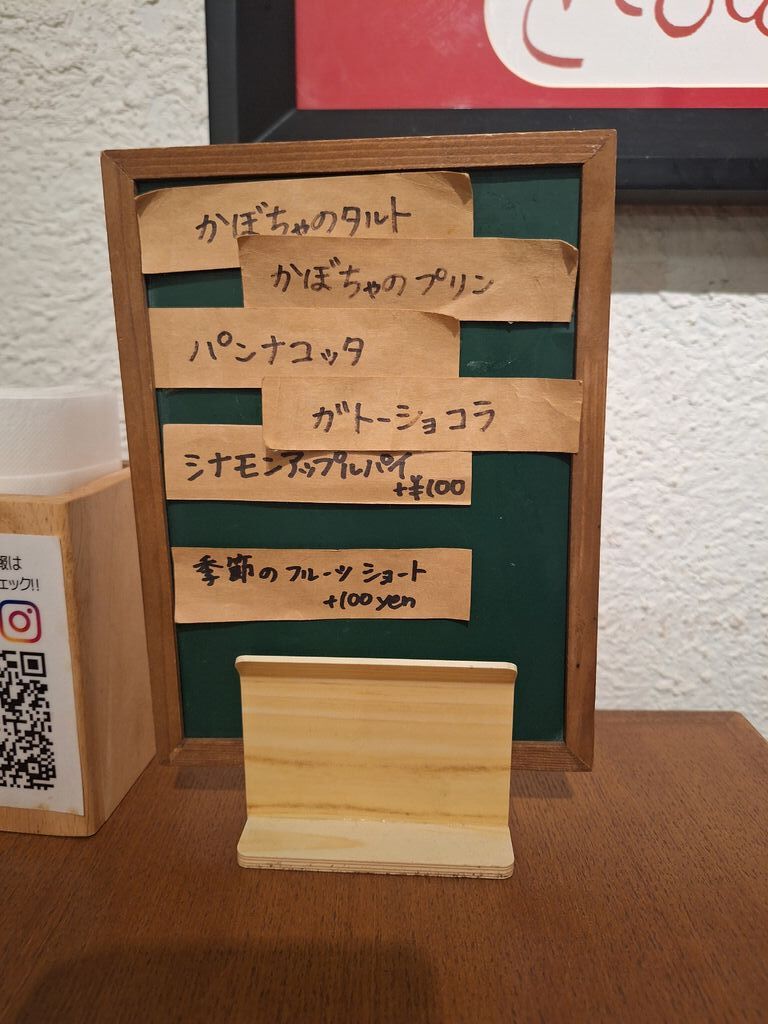 かぼちゃのタルト
かぼちゃのプリン
パンナコッタ
ガトーショコラ
シナモンアップルパイ
+¥100
季節のフルーツショート
+100yen
報は
ェック!!